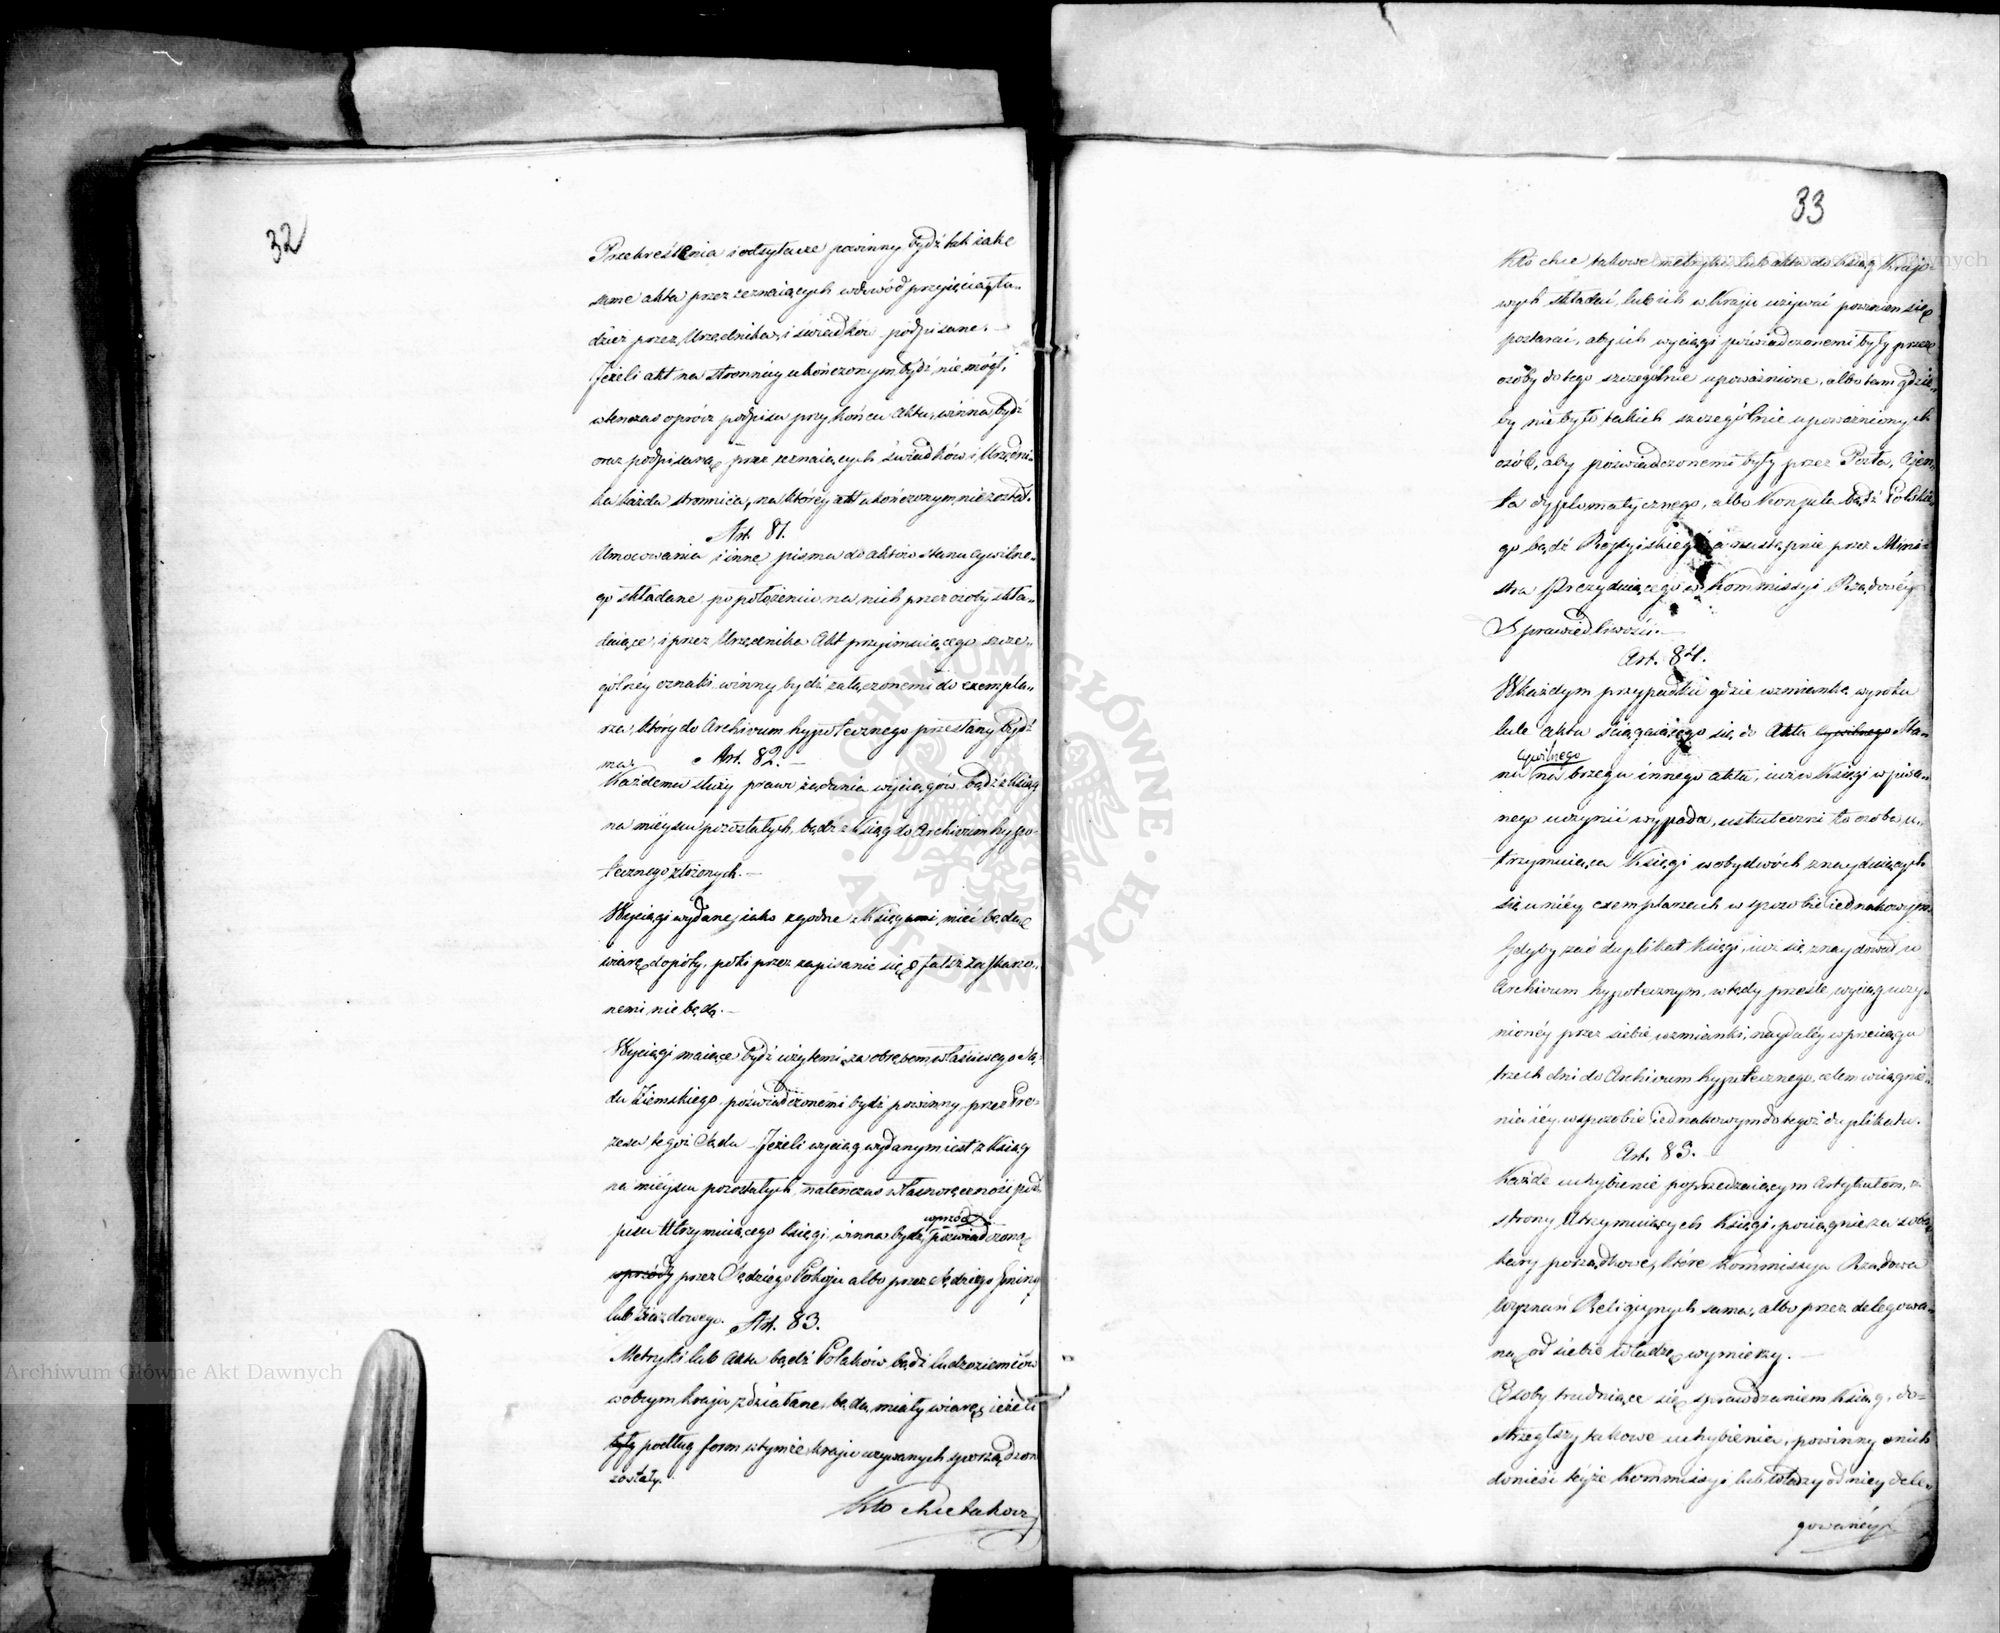 32
Przekreślenia i odsyłacze powinny bydź tak iako
same akta przez zeznaiących w dowód przyięcia, tu-
dzież przez Urzędnika, i świadków podpisane. –
Jeżeli akt na stronnicy ukończonym bydź nie mógł,
wtenczas oprócz podpisu przy końcu Aktu, winna bydź
oraz podpisaną przez zeznaiących świadków i Urzędni-
ka każda stronnica, na któréy akt ukończonym nie został.
Art. 81.
Umocowania i inne pisma do aktów stanu cywilne-
go składane, po położeniu na nich przez osoby skła-
daiące, i przez Urzędnika Akt przyimuiącego szcze-
gólnéy oznaki winny bydź załączonemi do exempla-
rza, który do Archivum hypotecznego przesłany bydź
ma. Art. 82. –
Każdemu służy prawo żądania wyciągów, bądź z Ksiąg
na mieyscu pozostałych, bądź z Ksiąg do Archivum hypo-
tecznego złożonych. –
Wyciągi wydane, iako zgodne z Księgami, mieć będą
wiarę dopóty, póki przez zapisanie się o fałsz zaskarżo-
nemi nie będą. –
Wyciągi maiące bydź użytemi za obrębem właściwego Są-
du Ziemskiego, poświadczonemi bydź powinny, przez Pre-
zesa tegoż Sądu – Jeżeli wyciąg wydanym iest z Ksiąg
na mieyscu pozostałych, natenczas własnoręczność pod-
wprzód
pisu Utrzymuiącego księgi winna bydź, poświadczoną
wprzódy przez Sędziego Pokoju albo przez Sędziego Gminy
lub Ziazdowego. Art. 83.
Metryki lub Akta bądź Polaków, bądź cudzoziemców
w obcym kraju zdziałane, będą miały wiarę, ieżeli
były podług form w tymże kraju używanych sporządzon
zostały.
Kto chce takow
33
Kto chce takowe metryki lub akta do Ksiąg Krajo-
wych składać, lub ich w Kraju używać powinien się
postarać, aby ich wyciągi poświadczonemi były przez
osoby do tego szczególnie upoważnione, albo tam gdzie-
by nie było takich szczególnie upoważnionych
osób, aby poświadczonemi były przez Posła, Ajen-
ta dyplomatycznego, albo Konsula bądź Polskie-
go bądź Rossyiskiego, a następnie przez Mini-
stra Prezyduiącego w Kommissyi Rządowéy
Sprawiedliwości. –
Art. 84.
W każdym przypadku gdzie wzmiankę wyroku
lub aktu ściągaiącego się do Akta cywilnego Sta-
cywilnego
nu na brzegu innego aktu, iuż w Księgi wpisa-
nego uczynić wypada, uskuteczni to osoba u-
trzymuiąca Księgi w obydwóch znayduiących
się u niéy exemplarzach w sposobie iednakowym.
Gdyby zaś duplikat księgi, iuż się znaydował w
Archivum hypotecznym, wtedy prześle wyciąg uczy-
nionéy przez siebie wzmianki, naydaléy w przeciągu
trzech dni do Archivum hypotecznego, celem wciągnie-
nia iéy w sposobie iednakowym do tegoż duplikatu.
Art. 83. –
Każde uchybienie poprzedzaiącym Artykułom, z
strony Utrzymuiących Księgi, pociągnie za sobą
kary porządkowe, które Kommissya Rządowa
Wyznań Religiynych sama, albo przez delegowa-
ną od siebie władzę wymierzy. –
Osoby trudniące się sprawdzaniem Ksiąg, do-
strzegłszy takowe uchybienia, powinny o nich
donieść téyże Kommissyi lub władzy od niéy dele-
gowanéy